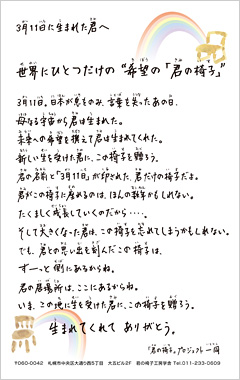 3月11日に生まれた君へ
世界にひとつだけの“希望の「君の椅子」”
3月11日。日本が息をのみ、言葉を失ったあの日。
母なる宇宙から君は生まれた。
未来への希望を携えて君は生まれてくれた。
新しい生を受けた君に、この椅子を贈ろう。
君の名前と「3月11日」が印された、君だけの椅子だよ。
君がこの椅子に座れるのは、ほんの数年かもしれない。
たくましく成長していくのだから‥‥。
そして大きくなった君は、この椅子を忘れてしまうかもしれない。
でも、君との思い出を刻んだこの椅子は、
ずーっと側にあるからね。
君の居場所は、ここにあるからね。
いま、この地に生を受けた君に、この椅子を贈ろう。
生まれてくれて ありがとう。
「君の椅子」プロジェクト一同
〒060-0042 札幌市中央区大通り西5丁目 大五ビル2F 君の椅子工房学舎 Tel.011-233-0603